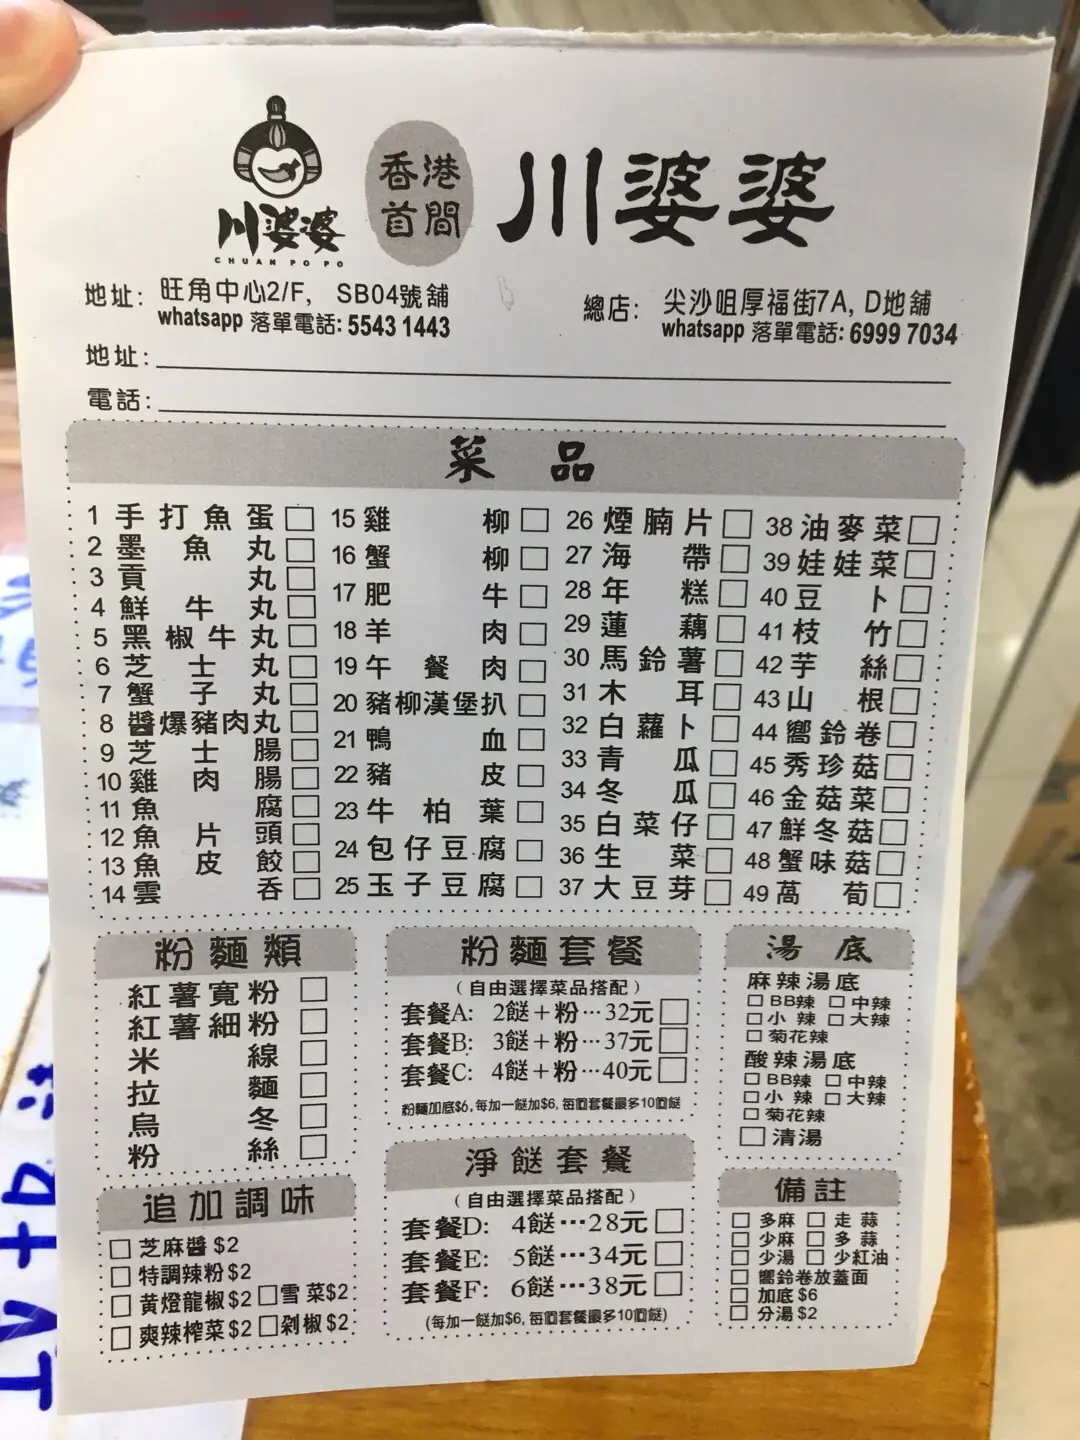 川婆婆
CHUAN PO PO
香港
首間
川婆婆
地址: 旺角中心2/F, SB04號舖
whatsapp 落單電話: 5543 1443
總店: 尖沙咀厚福街7A, D地舖
whatsapp 落單電話: 6999 7034
地址:
電話:
菜品
1 手打魚蛋
2 墨魚丸
3 貢丸
4 鮮牛丸
5 黑椒牛丸
6 芝士丸
7 蟹子丸
8 醬爆豬肉丸
9 芝士腸
10 雞肉腸
11 魚腐
12 魚片頭
13 魚皮餃
14 雲吞
15 雞柳
16 蟹柳
17 肥牛
18 羊肉
19 午餐肉
20 豬柳漢堡扒
21 鴨血
22 豬皮
23 牛柏葉
24 包仔豆腐
25 玉子豆腐
26 煙腩片
27 海帶
28 年糕
29 蓮藕
30 馬鈴薯
31 木耳
32 白蘿卜
33 青瓜
34 冬瓜
35 白菜仔
36 生菜
37 大豆芽
38 油麥菜
39 娃娃菜
40 豆卜
41 枝竹
42 芋絲
43 山根
44 嚮鈴卷
45 秀珍菇
46 金菇菜
47 鮮冬菇
48 蟹味菇
49 萵荀
粉麵類
紅薯寬粉
紅薯細粉
米線
拉麵
烏冬
粉絲
追加調味
芝麻醬 $2
特調辣粉 $2
黄燈龍椒 $2 雪菜 $2
爽辣榨菜 $2 剁椒 $2
粉麵套餐
(自由選擇菜品搭配)
套餐A: 2餸+粉…32元
套餐B: 3餸+粉…37元
套餐C: 4餸+粉…40元
粉麵加底$6, 每加一餸加$6, 每個套餐最多10個餸
淨餸套餐
(自由選擇菜品搭配)
套餐D: 4餸…28元
套餐E: 5餸…34元
套餐F: 6餸…38元
(每加一餸加$6, 每個套餐最多10個餸)
湯底
麻辣湯底
BB辣 中辣
小辣 大辣
菊花辣
酸辣湯底
BB辣 中辣
小辣 大辣
菊花辣
清湯
備註
多麻 走蒜
少麻 多蒜
少湯 少紅油
嚮鈴卷放蓋面
加底 $6
分湯 $2